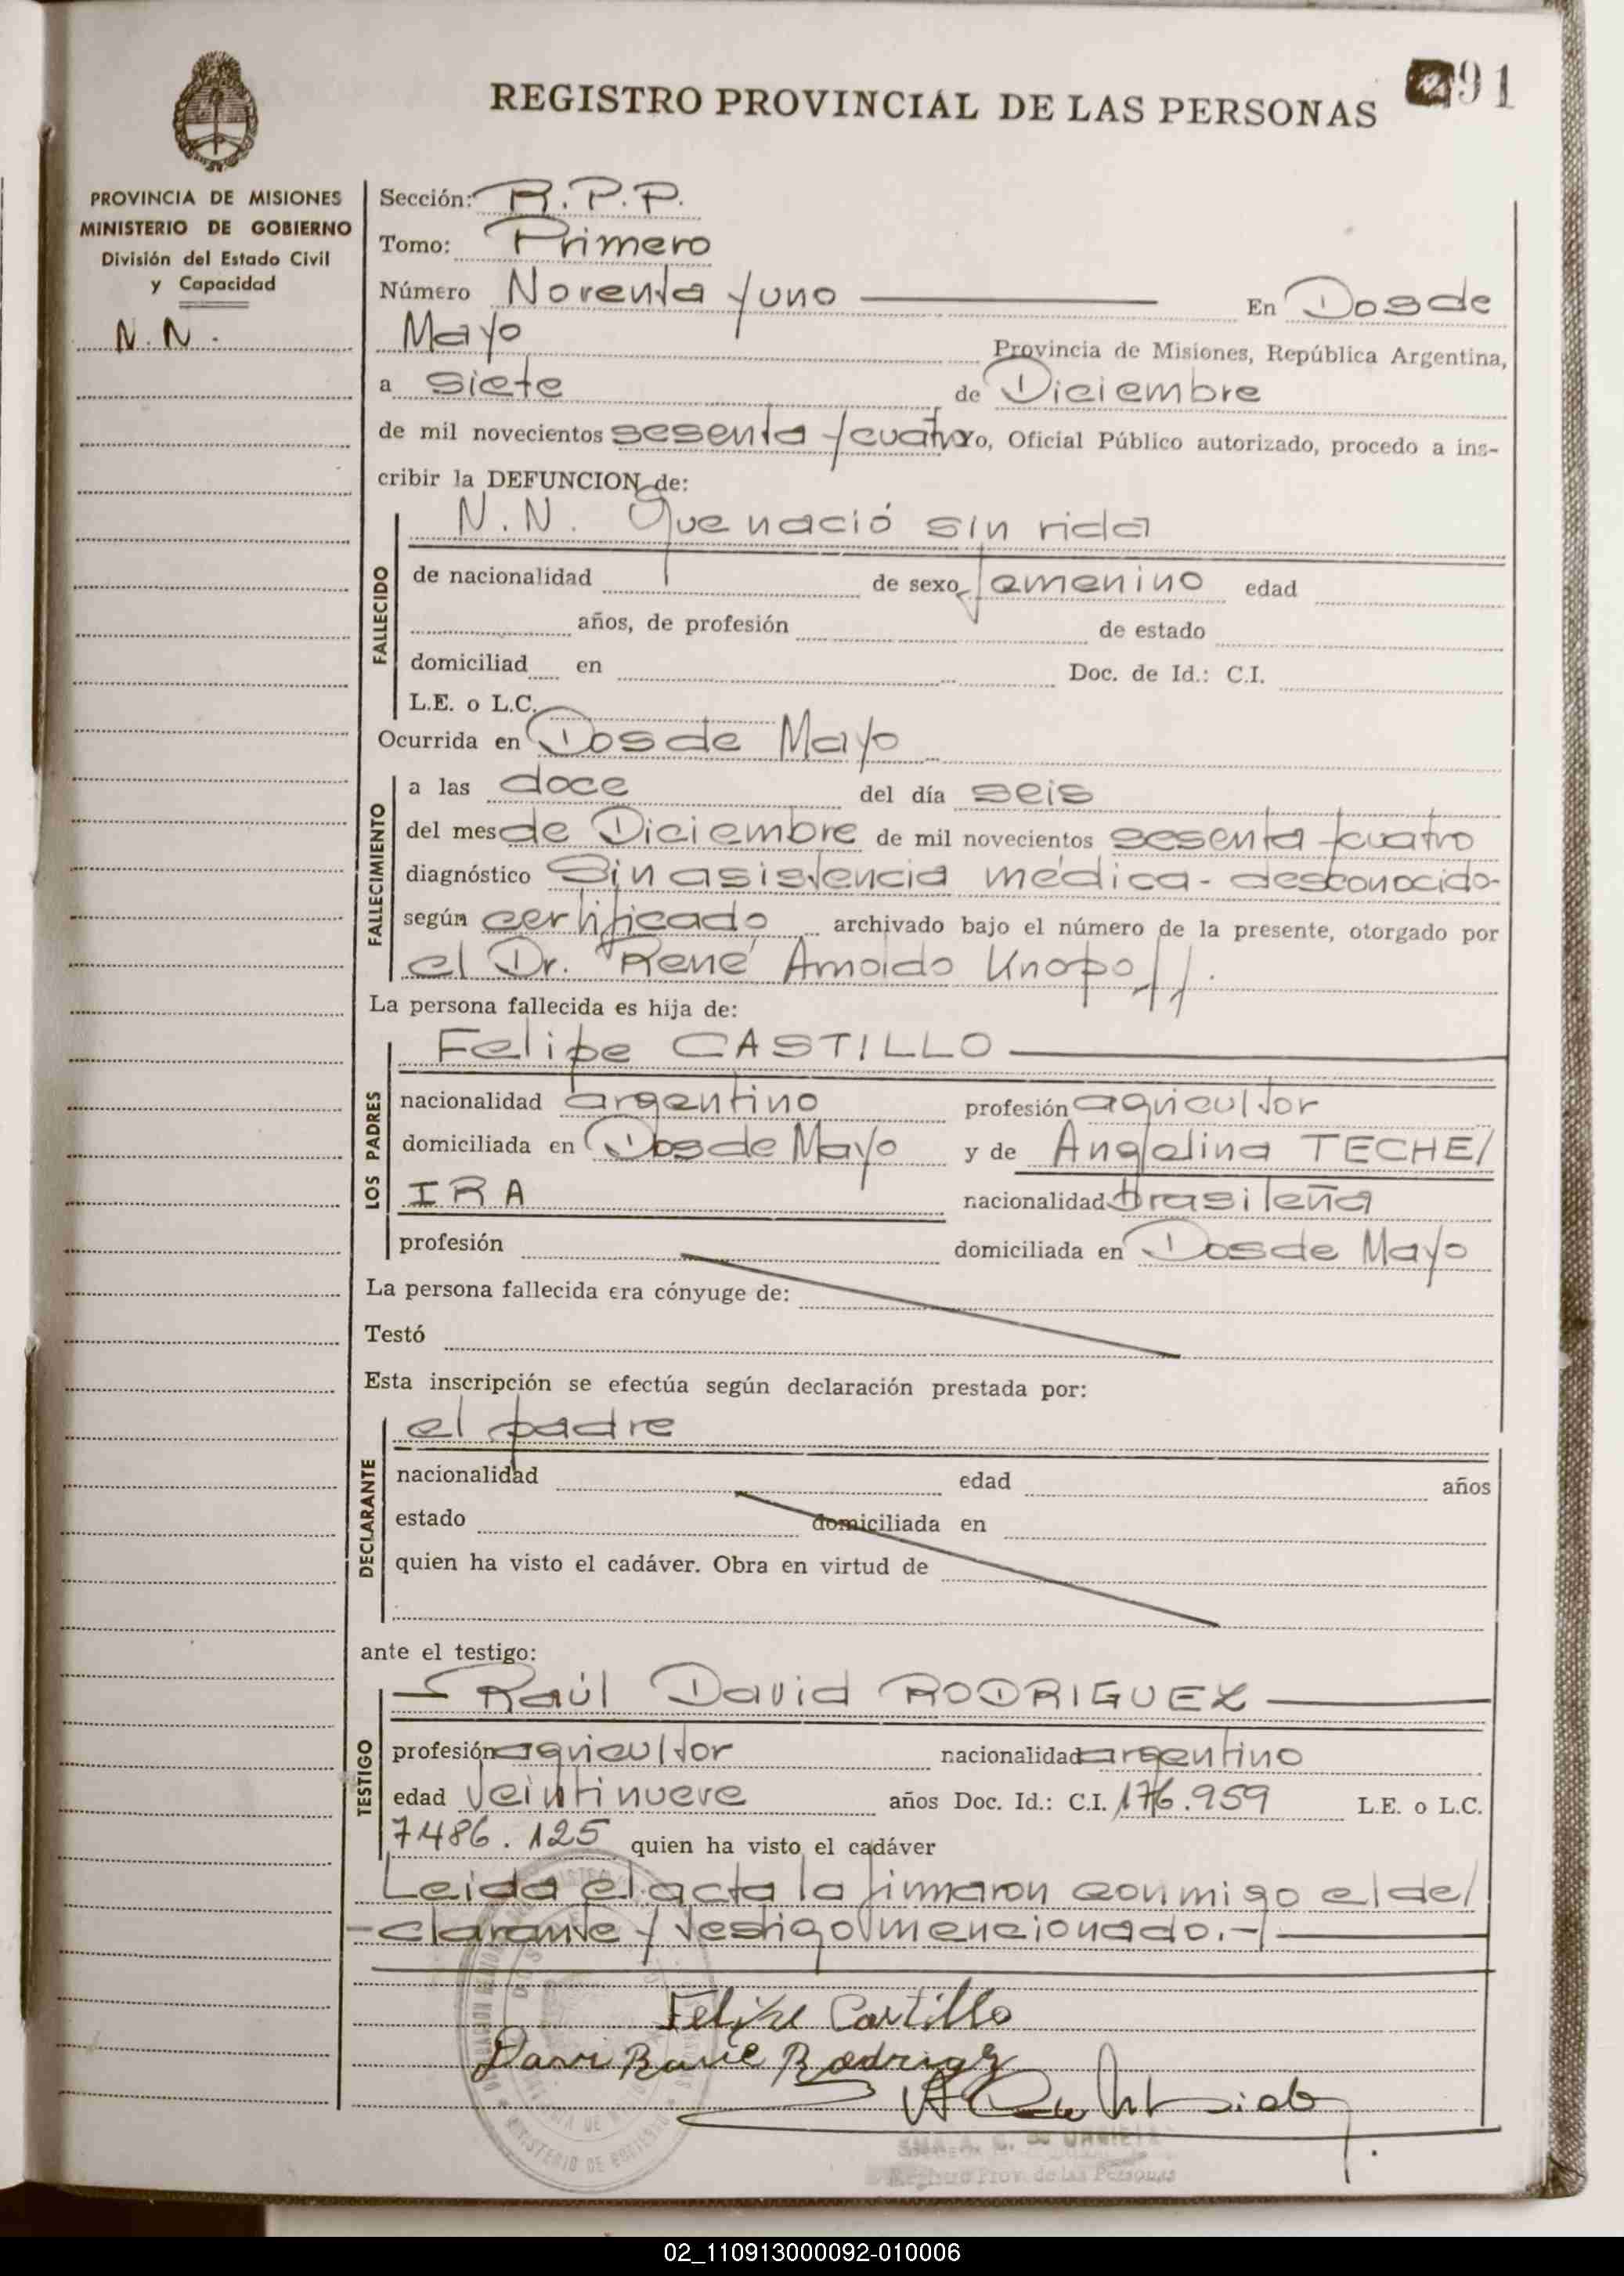 REGISTRO PROVINCIAL DE LAS PERSONAS
91
PROVINCIA DE MISIONES
MINISTERIO DE GOBIERNO
División del Estado Civil
y Capacidad
N. N.
Sección: R. P. P.
Tomo: Primero
Número Noventa y uno En Dos de
Mayo Provincia de Misiones, República Argentina,
a siete de Diciembre
de mil novecientos sesenta y cuatro Yo, Oficial Público autorizado, procedo a ins-
cribir la DEFUNCION de:
N. N. Que nació sin vida
FALLECIDO
de nacionalidad de sexo femenino edad
años, de profesión de estado
domiciliad en Doc. de Id.: C.I.
L.E. o L.C.
Ocurrida en Dos de Mayo
FALLECIMIENTO
a las doce del día seis
del mes de Diciembre de mil novecientos sesenta y cuatro
diagnóstico Sin asistencia médica - desconocido-
según certificado archivado bajo el número de la presente, otorgado por
el Dr. René Arnoldo Knopoff.
La persona fallecida es hija de:
LOS PADRES
Felipe CASTILLO
nacionalidad argentino profesión agricultor
domiciliada en Dos de Mayo y de Angelina TECHE/
IRA nacionalidad brasileña
profesión domiciliada en Dos de Mayo
La persona fallecida era cónyuge de:
Testó
Esta inscripción se efectúa según declaración prestada por:
DECLARANTE
el padre
nacionalidad edad años
estado domiciliada en
quien ha visto el cadáver. Obra en virtud de
ante el testigo:
TESTIGO
Raúl David RODRIGUEZ
profesión agricultor nacionalidad argentino
edad veintinueve años Doc. Id.: C.I. 176.959 L.E. o L.C.
7486.125 quien ha visto el cadáver
Leida el acta la firmaron conmigo el de/
-clarante y testigo mencionado.-
Felipe Castillo
Registro Prov. de las Personas
02_110913000092-010006